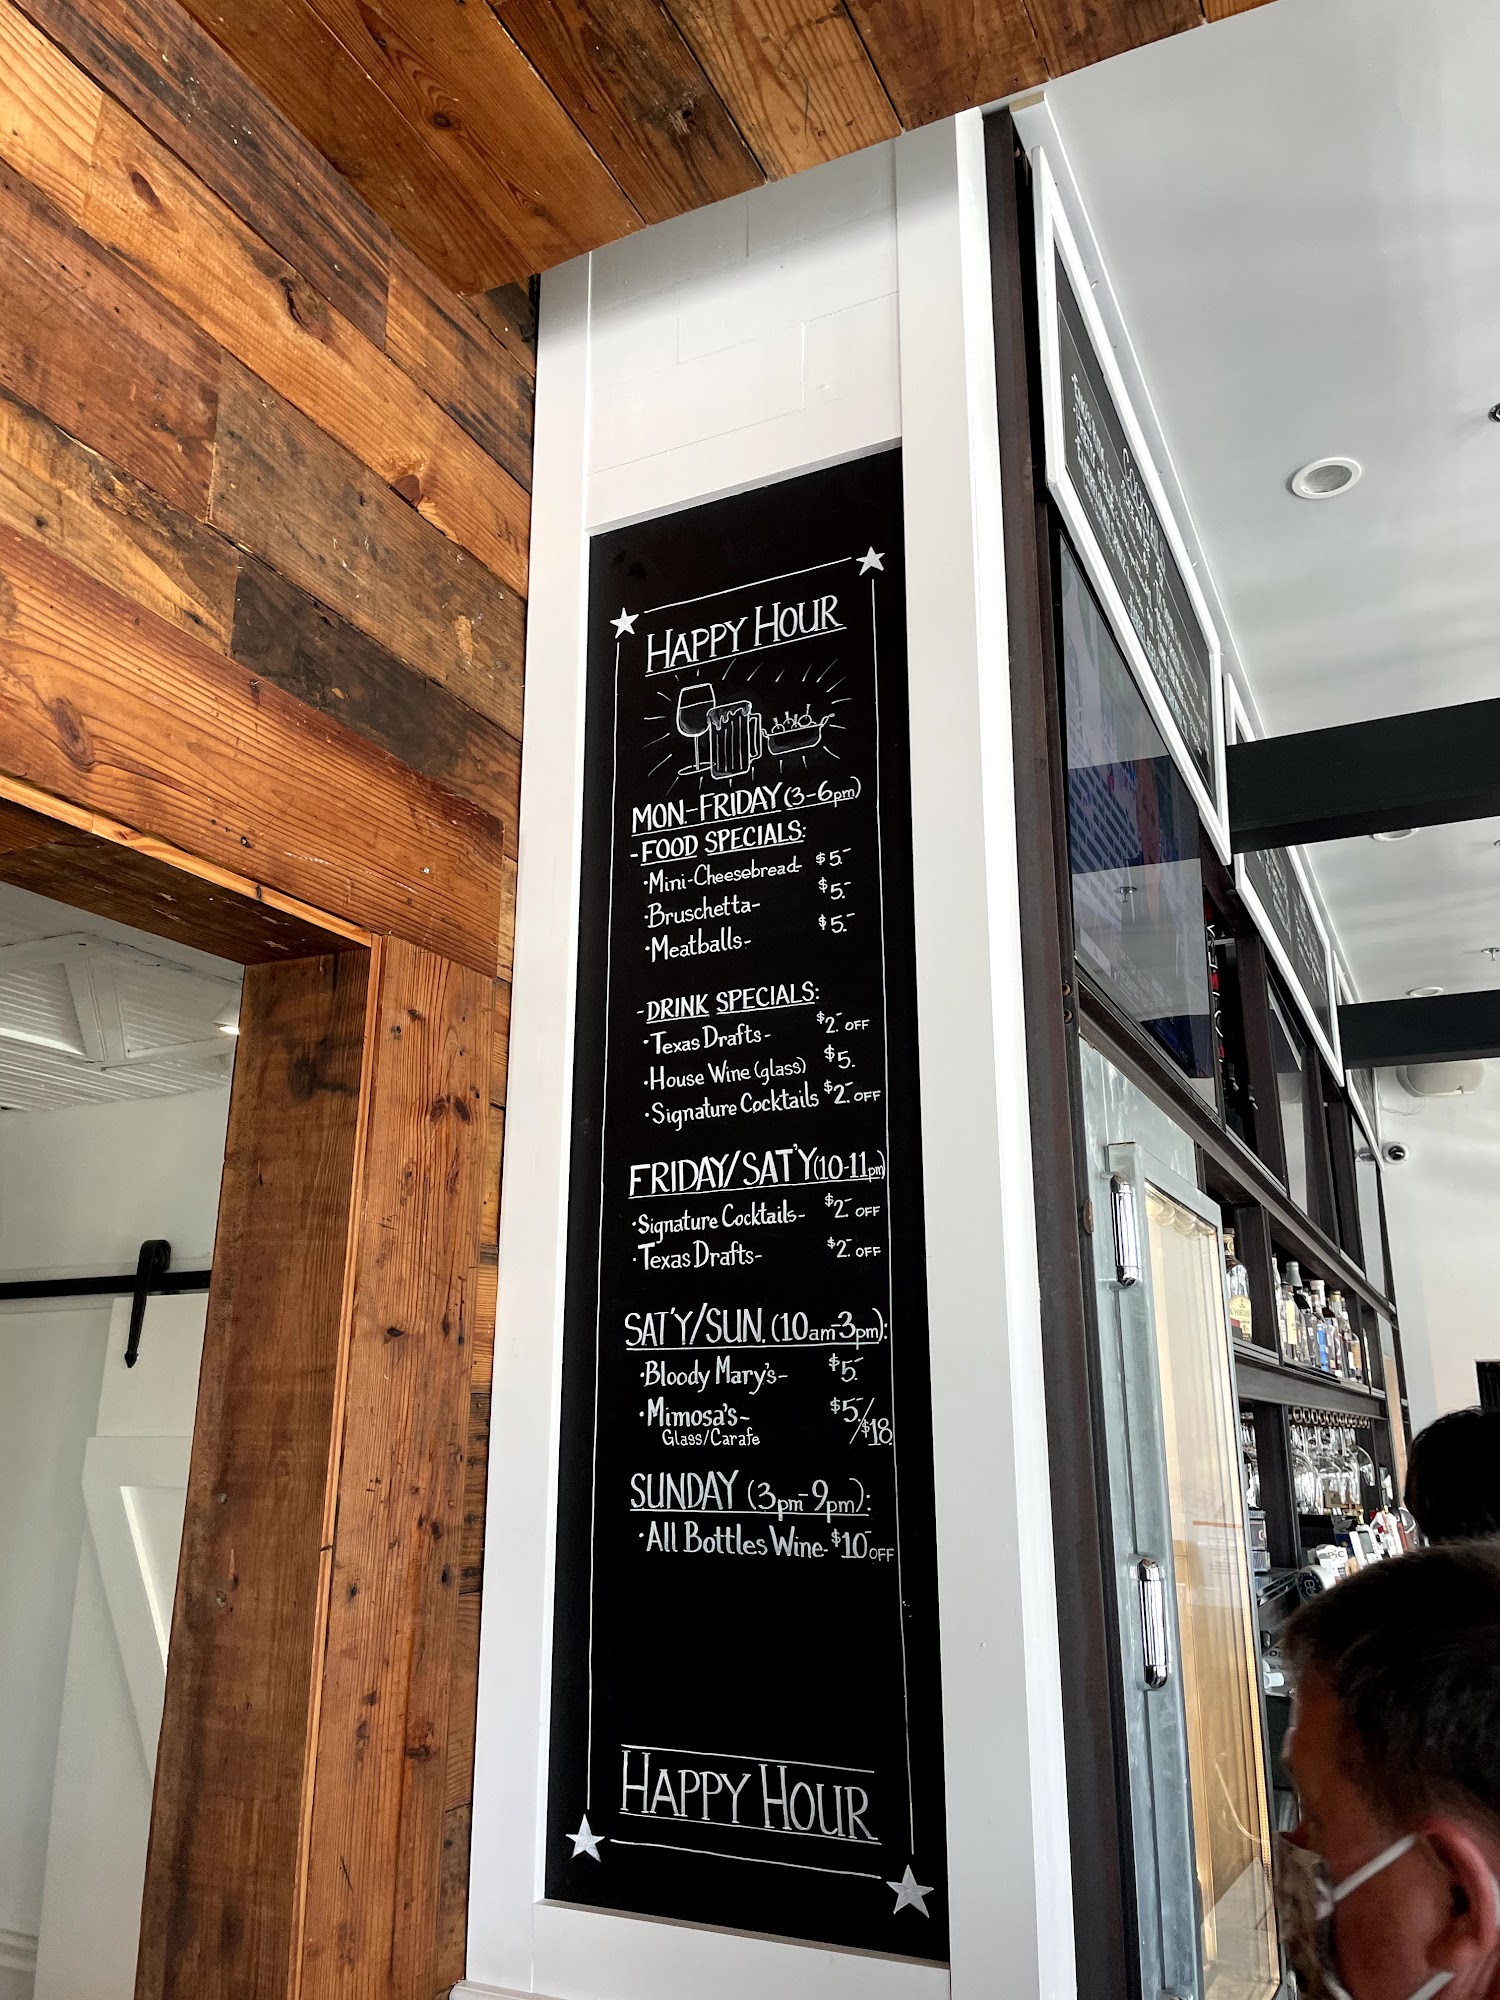 HAPPY HOUR
MON.-FRIDAY (3-6pm)
-FOOD SPECIALS:
·Mini-Cheesebread- $5.-
·Bruschetta- $5.-
·Meatballs- $5.-
-DRINK SPECIALS:
·Texas Drafts- $2.- OFF
·House Wine (glass) $5.
·Signature Cocktails $2.- OFF
FRIDAY/SAT'Y (10-11pm)
·Signature Cocktails- $2.- OFF
·Texas Drafts- $2.- OFF
SAT'Y/SUN. (10am-3pm):
·Bloody Mary's- $5.-
·Mimosa's- $5.-/$18
Glass/Carafe
SUNDAY (3pm-9pm):
·All Bottles Wine- $10.- OFF
HAPPY HOUR